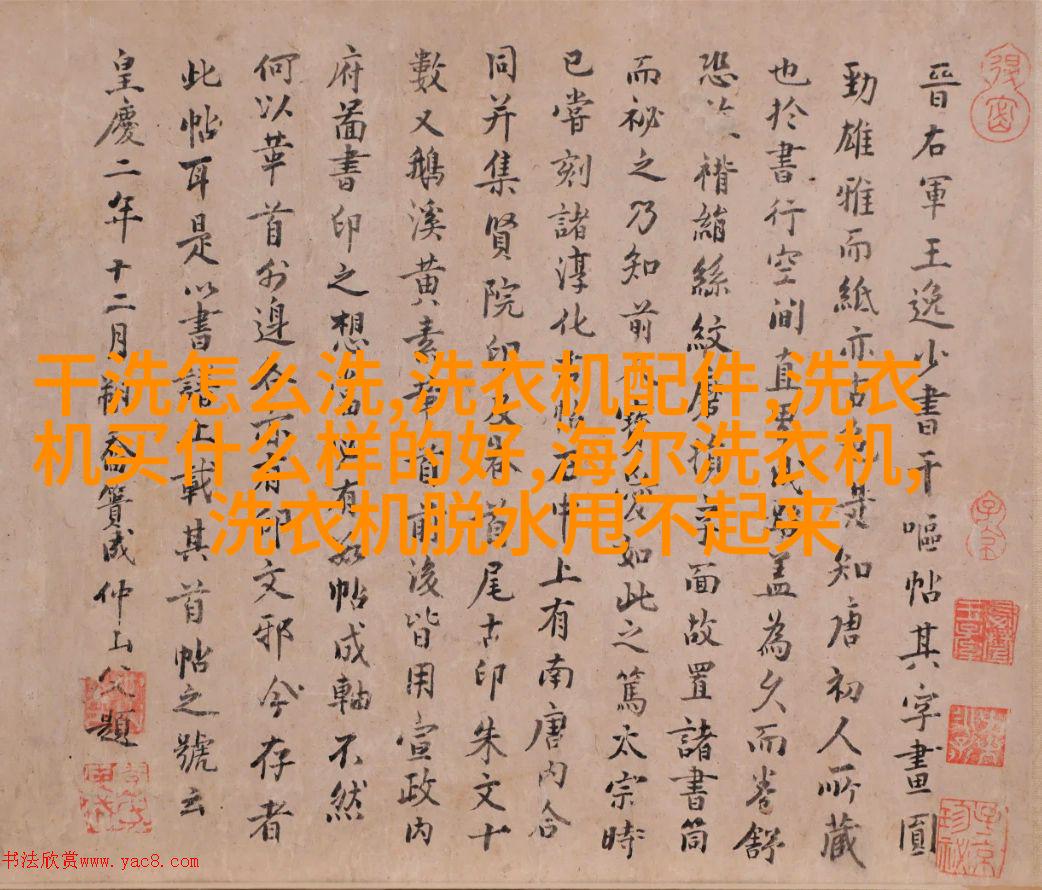 晉右軍王逸少書干嘔帖其字畫圓
勁雄雅而紙亦古是知唐初人所藏
也於書行空間直蓋為久而卷舒
恐褙縮絲紋唐面故置諸書筒
而祕之乃知前如此之篤太宗時
已嘗刻諸淳化中上有南唐內合
同并集賢院印首尾古印朱文十
數又鵝溪黃素前後皆用宣政內
府啚書印之想有帖成軸不然
何以華首外邊印文邪今存者
此帖耳是以書諸上載其首帖之號云
皇慶二年十二月朔簣成仲山父題
干洗怎么洗,洗衣机配件,洗衣
机买什么样的好,海尔洗衣机,
洗衣机脱水甩不起来
书法欣赏www.yac8.com